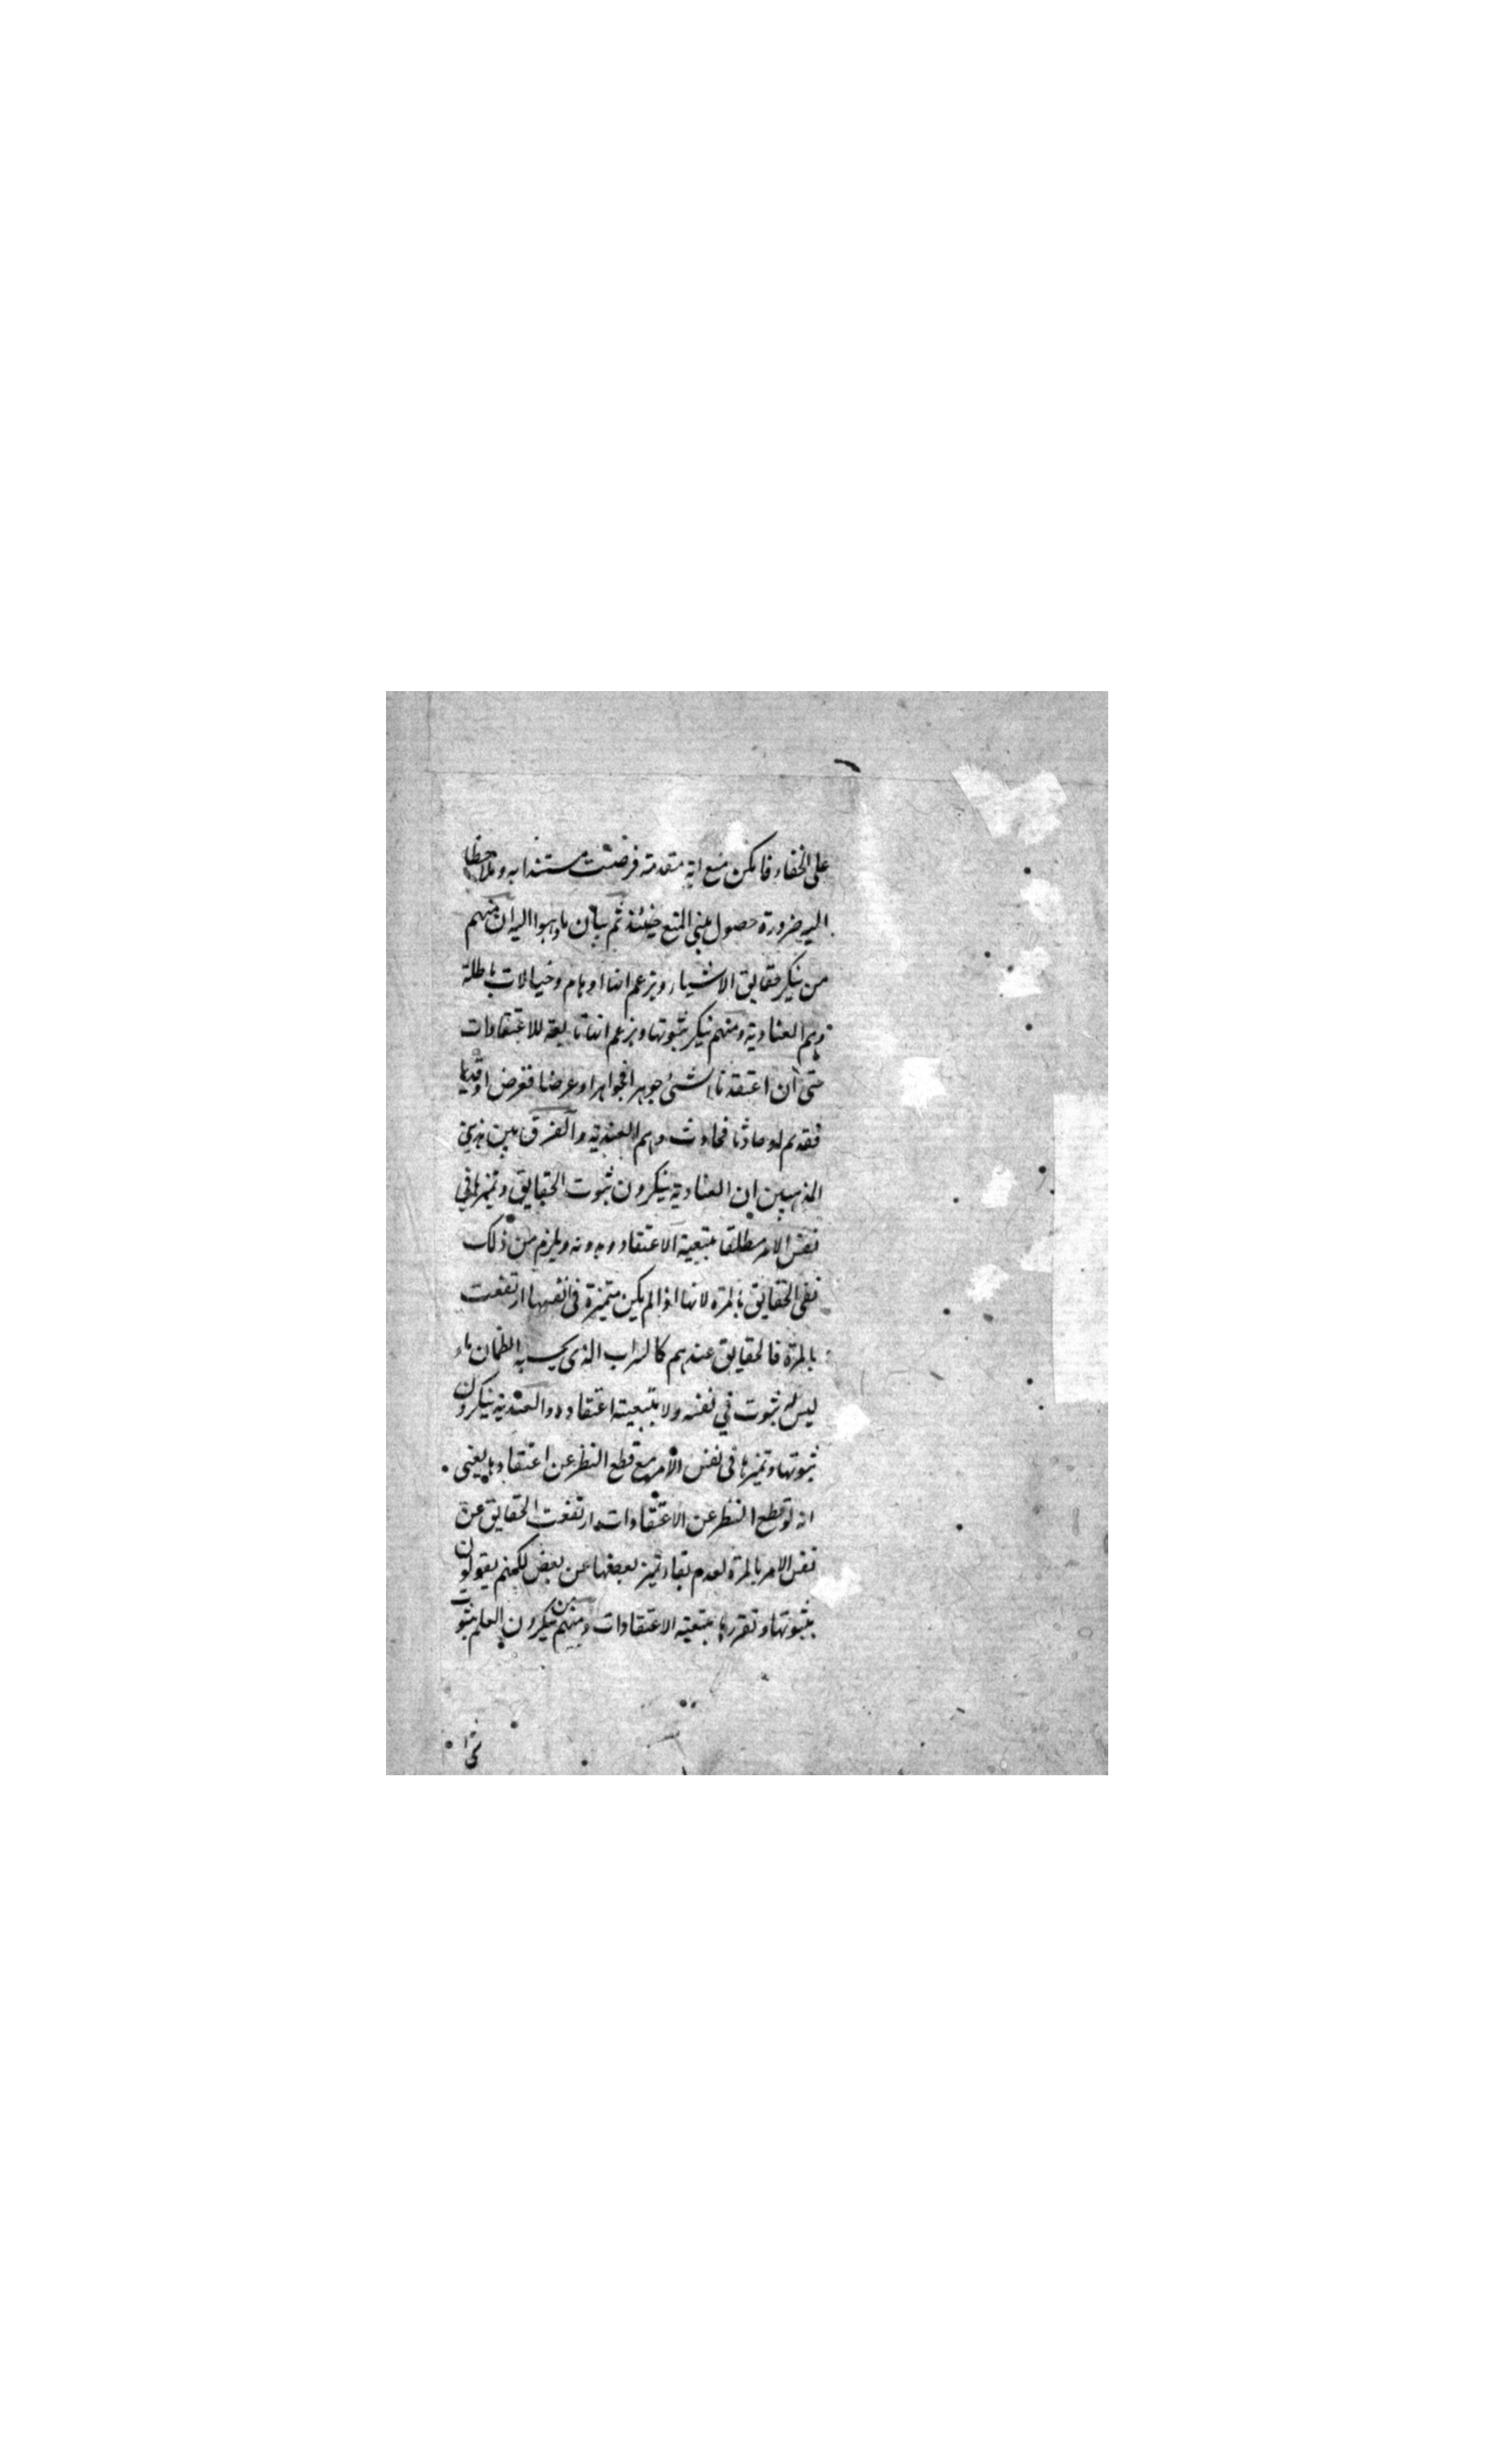 على الخفاء فامكن منع اية مقدمة فرضت مستندا به وملاحظا
اليه ضرورة حصول مبنى المنع حينئذ ثم بيان ما ذهبوا اليه ان منهم
من ينكر حقايق الاشياء ويزعم انها اوهام وخيالات باطلة
وهم العنادية ومنهم ينكر ثبوتها ويزعم انها تابعة للاعتقادات
حتى ان اعتقدنا الشئ جوهرا فجوهرا وعرضا فعرض او قديما
فقديم او حادثا فحادث وهم العندية والفرق بين هذين
المذهبين ان العنادية ينكرون ثبوت الحقايق وتميزها في
نفس الامر مطلقا بتبعية الاعتقاد وبدونه ويلزم من ذلك
نفى الحقايق بالمرة لانها اذا لم يكن متميزة في انفسها ارتفعت
بالمرة فالحقايق عندهم كالسراب الذى يحسبه الظمان ماء
ليس له ثبوت في نفسه ولا بتبعية اعتقاده والعندية ينكرون
ثبوتها وتميزها في نفس الامر مع قطع النظر عن اعتقادها يعنى
انه لو قطع النظر عن الاعتقادات ارتفعت الحقايق عن
نفس الامر بالمرة لعدم بقاء تميز بعضها عن بعض لكنهم يقولون
بثبوتها وتقررها بتبعية الاعتقادات ومنهم من ينكرون العلم بثبوت